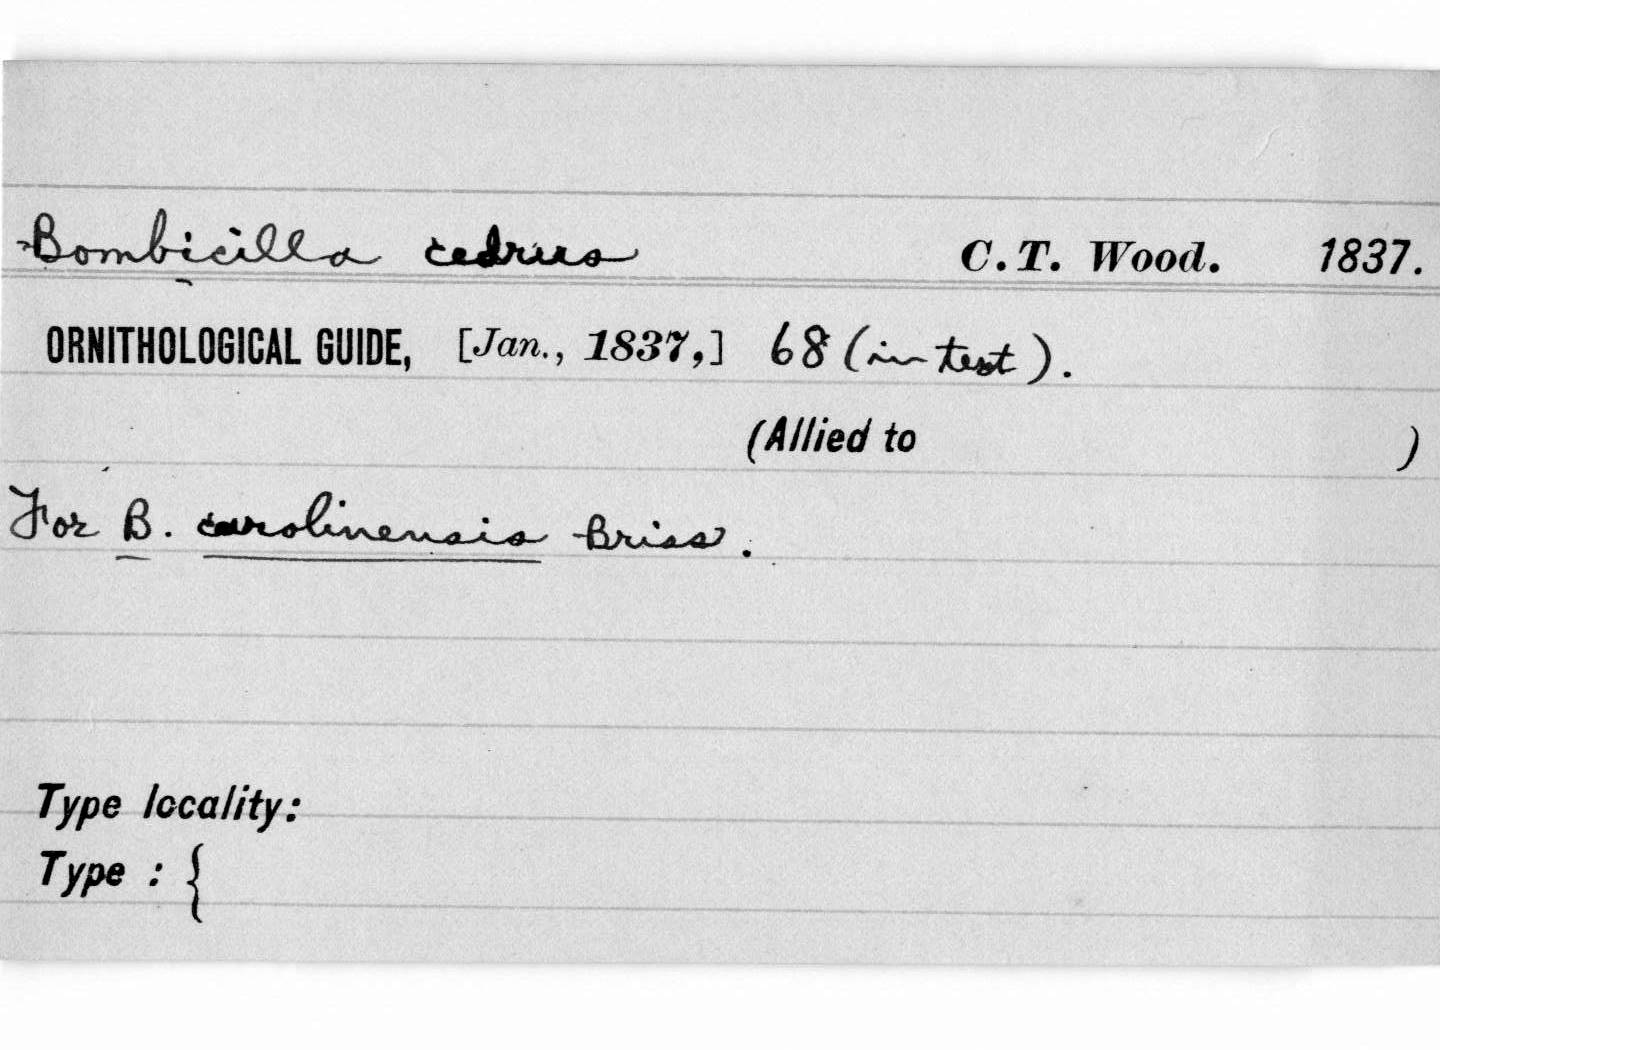 Bombicilla cedrus C. T. Wood. 1837.
ORNITHOLOGICAL GUIDE, [Jan., 1837,] 68 (in text).
(Allied to )
For B. carolinensis Briss.
Type locality:
Type : {